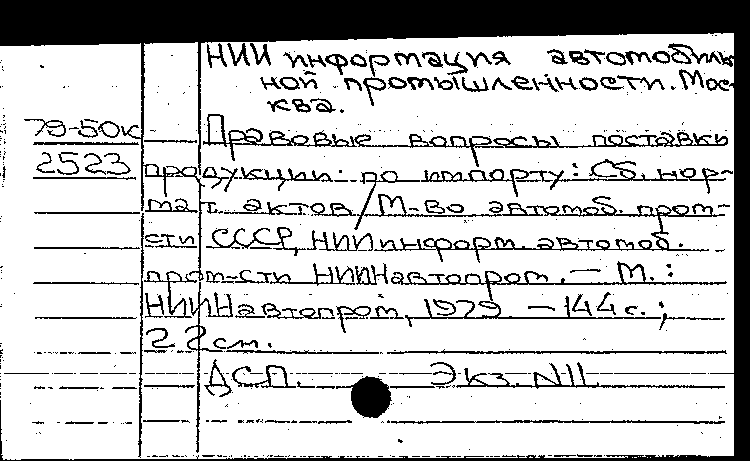 НИИ информация автомобиль
ной промышленности. Мос-
ква.
79-50к Правовые вопросы поставки
2523 продукции по импорту: Сб. нор-
мат. актов / М-во автомоб. пром-
сти СССР, НИИ информ. автомоб.
пром-сти НИИНавтопром. — М.:
НИИНавтопром, 1979. — 144 с.;
22 см.
ДСП. Экз. N11